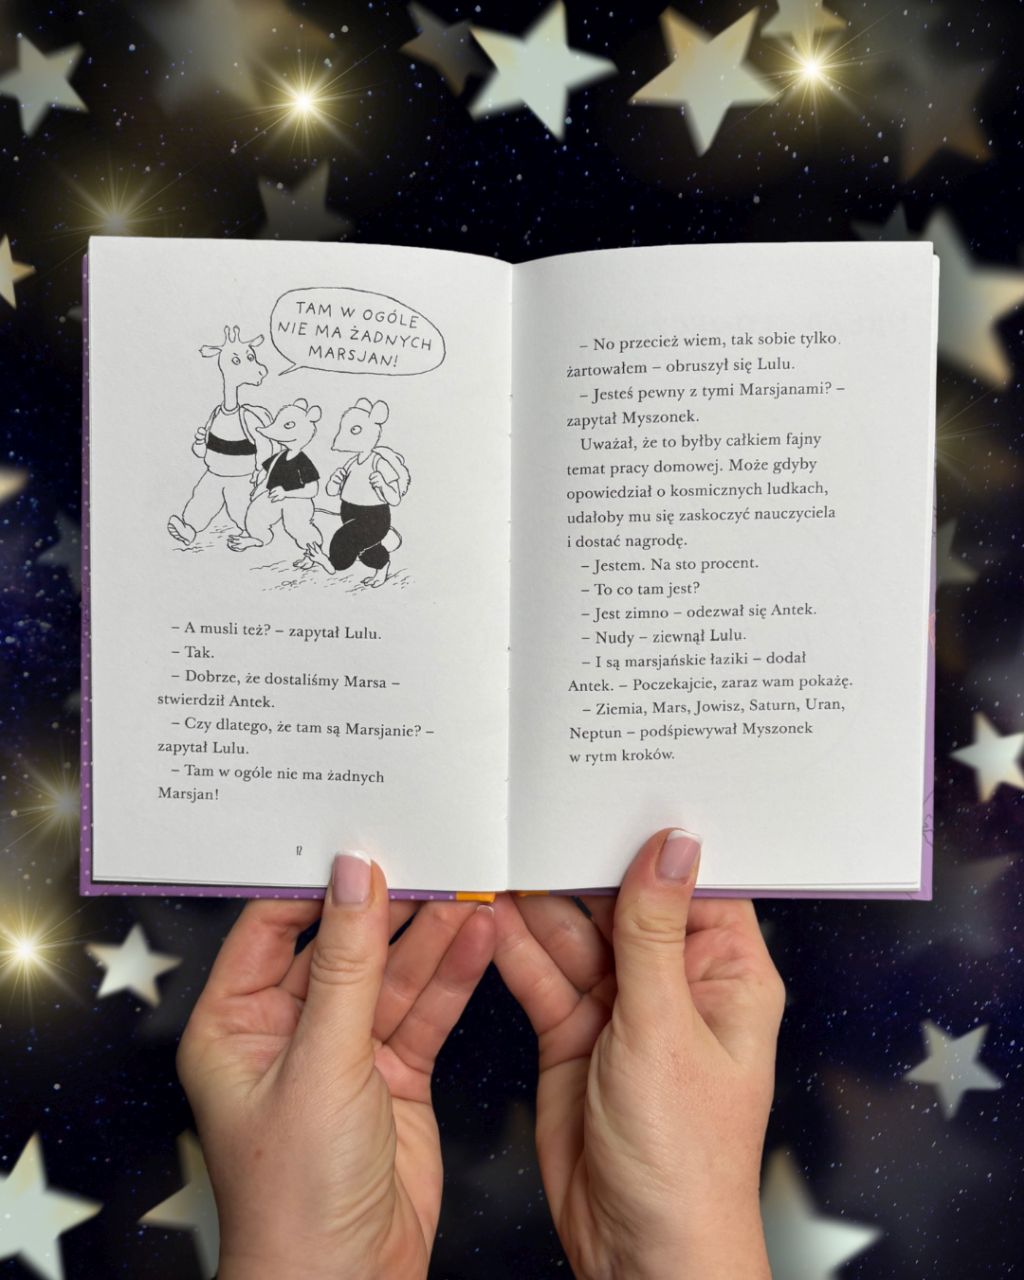 TAM W OGÓLE
NIE MA ŻADNYCH
MARSJAN!
– A musli też? – zapytał Lulu.
– Tak.
– Dobrze, że dostaliśmy Marsa –
stwierdził Antek.
– Czy dlatego, że tam są Marsjanie? –
zapytał Lulu.
– Tam w ogóle nie ma żadnych
Marsjan!
12
– No przecież wiem, tak sobie tylko
żartowałem – obruszył się Lulu.
– Jesteś pewny z tymi Marsjanami? –
zapytał Myszonek.
Uważał, że to byłby całkiem fajny
temat pracy domowej. Może gdyby
opowiedział o kosmicznych ludkach,
udałoby mu się zaskoczyć nauczyciela
i dostać nagrodę.
– Jestem. Na sto procent.
– To co tam jest?
– Jest zimno – odezwał się Antek.
– Nudy – ziewnął Lulu.
– I są marsjańskie łaziki – dodał
Antek. – Poczekajcie, zaraz wam pokażę.
– Ziemia, Mars, Jowisz, Saturn, Uran,
Neptun – podśpiewywał Myszonek
w rytm kroków.